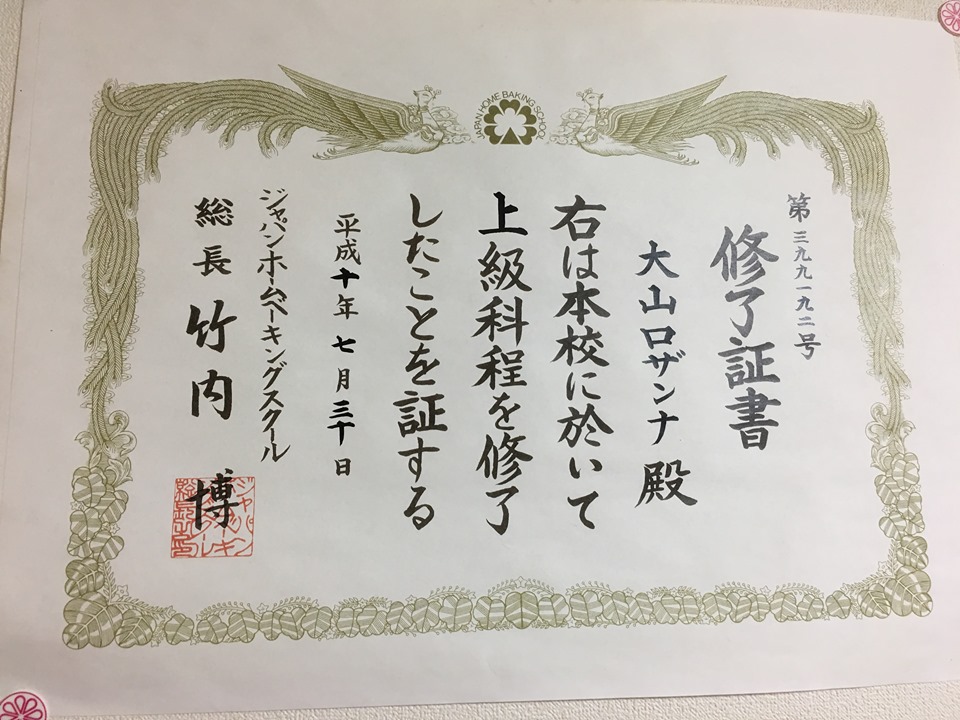 JAPAN HOME BAKING SCHOOL
第三九九一九二号
修了証書
大山ロザンナ殿
右は本校に於いて
上級科程を修了
したことを証する
平成十年七月三十日
ジャパンホームベーキングスクール
総長竹内博